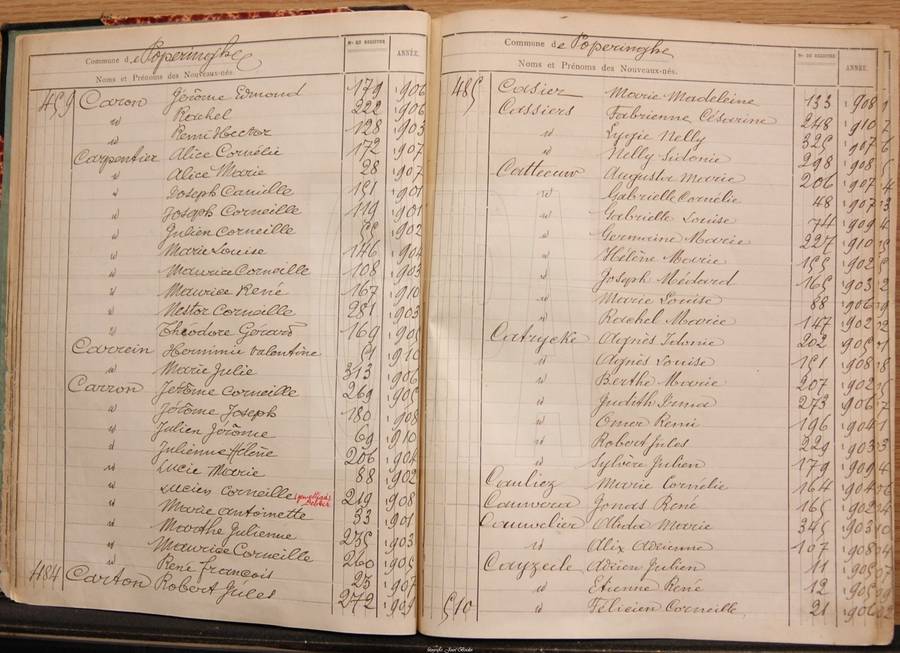 Commune de Poperinghe
Noms et Prénoms des Nouveaux-nés.
Nos DU REGISTRE
ANNÉE.
459 Caron Jérôme Edmond 179 1906
id Rachel 222 1906
id Remi Hector 128 1903
Carpentier Alice Cornélie 172 1907
id Alice Marie 28 1907
id Joseph Camille 151 1901
id Joseph Corneille 119 1901
id Julien Corneille 55 1902
id Marie Louise 146 1904
id Maurice Corneille 108 1903
id Maurice René 167 1910
id Nestor Corneille 281 1903
id Théodore Gérard 169 1905
Carrein Hominie Valentine 51 1910
id Marie Julie 313 1906
Carron Jérôme Corneille 269 1905
id Jérôme Joseph 180 1908
id Julien Jérôme 69 1910
id Julienne Hélène 206 1904
id Lucie Marie 88 1902
id Lucien Corneille 219 1908
id Marie Antoinette 33 1901
id Marthe Julienne 235 1903
id Maurice Corneille 260 1905
id René François 23 1907
484 Carton Robert Jules 272 1909
Commune de Poperinghe
Noms et Prénoms des Nouveaux-nés.
Nos DU REGISTRE
ANNÉE.
485 Casier Marie Madeleine 133 1908
Cassiers Fabrienne Césarine 248 1910
id Lygie Nelly 325 1907
id Nelly Sidonie 298 1908
Catteeuw Augusta Marie 206 1907
id Gabrielle Cornélie 48 1907
id Gabrielle Louise 74 1909
id Germaine Marie 227 1910
id Hélène Marie 155 1902
id Joseph Médard 165 1903
id Marie Louise 88 1906
id Rachel Marie 147 1902
Catrycke Agnès Idonie 202 1905
id Agnès Louise 151 1908
id Berthe Marie 207 1902
id Judith Irma 273 1906
id Omer Remi 196 1904
id Robert Jules 229 1903
id Sylvère Julien 179 1909
Cauliez Marie Cornélie 164 1904
Cauwera Jonas René 165 1902
Cauwelier Alida Marie 345 1903
id Alix Adrienne 107 1908
Cayzeele Adrien Julien 11 1905
id Etienne René 12 1905
510 id Félicien Corneille 21 1906